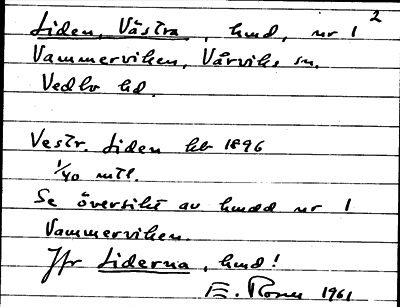 2
Liden, Västra, hmd, nr 1
Vammerviken, Vårviks sn.
Vedbo hd.
Vestr. Liden hb 1896
1/40 mtl.
Se översikt av hmdd nr 1
Vammerviken.
Jfr Liderna, hmd!
E. 1961